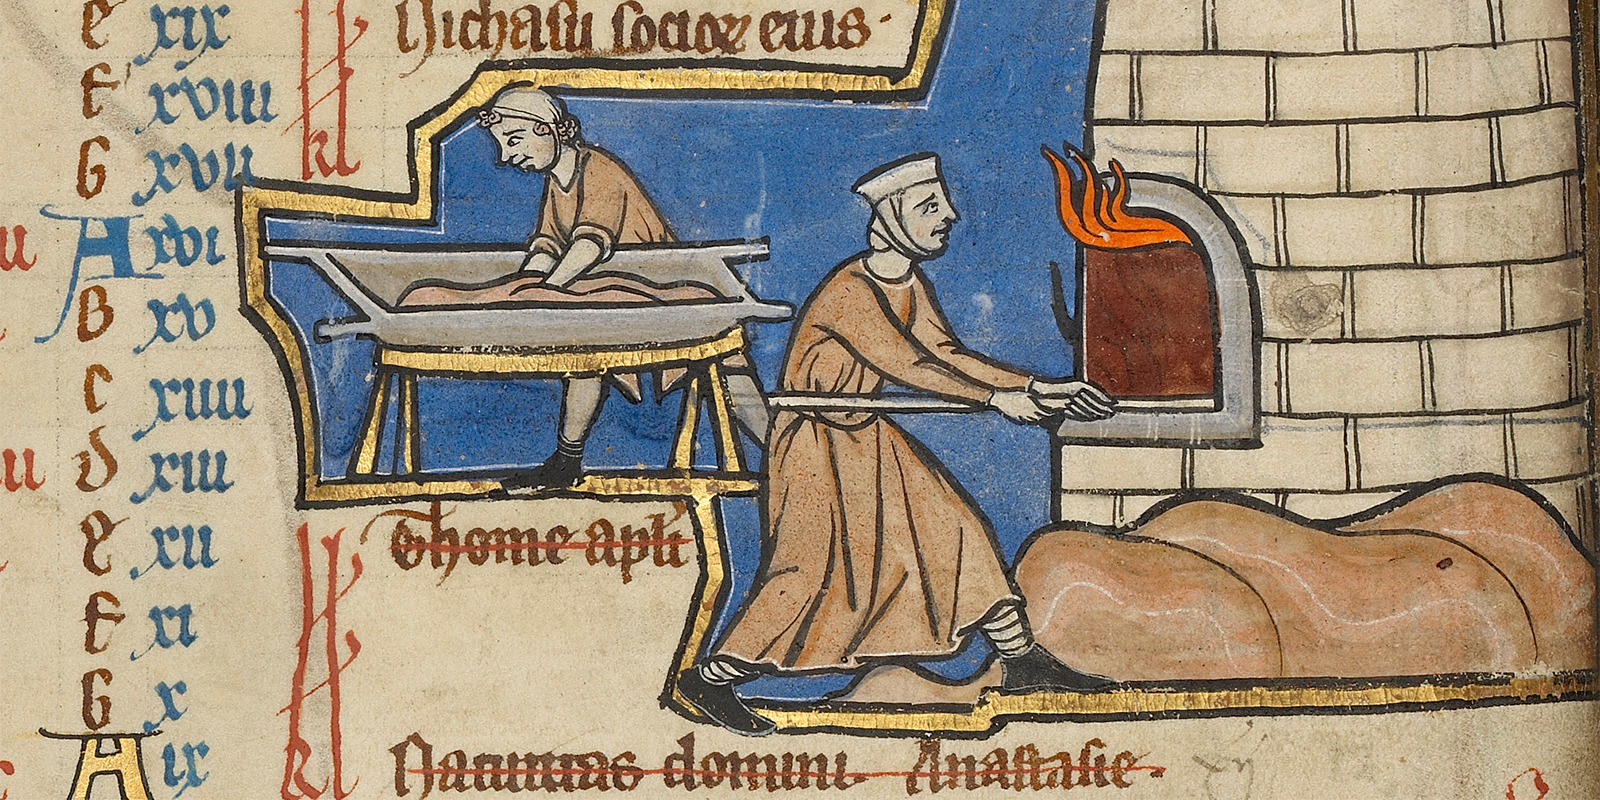 e xix Nichasii socior eius.
f xviii
G xvii kl
A xvi
B xv
c xiiii
d xiii
e xii Thome apli
f xi
G x
A ix kl Natiuitas domini. Anastasie.